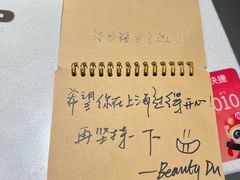 希望你在上海过得开心
再坚持一下
—Beauty Du
快捷
010